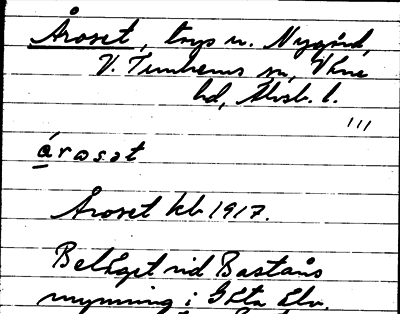 Åroset, torp u. Nygård,
V. Tunhems sn, Väne
hd, Älvsb. l.
111
årosət
Åroset kb 1917.
Beläget vid Bastäns
mynning i Göta älv.